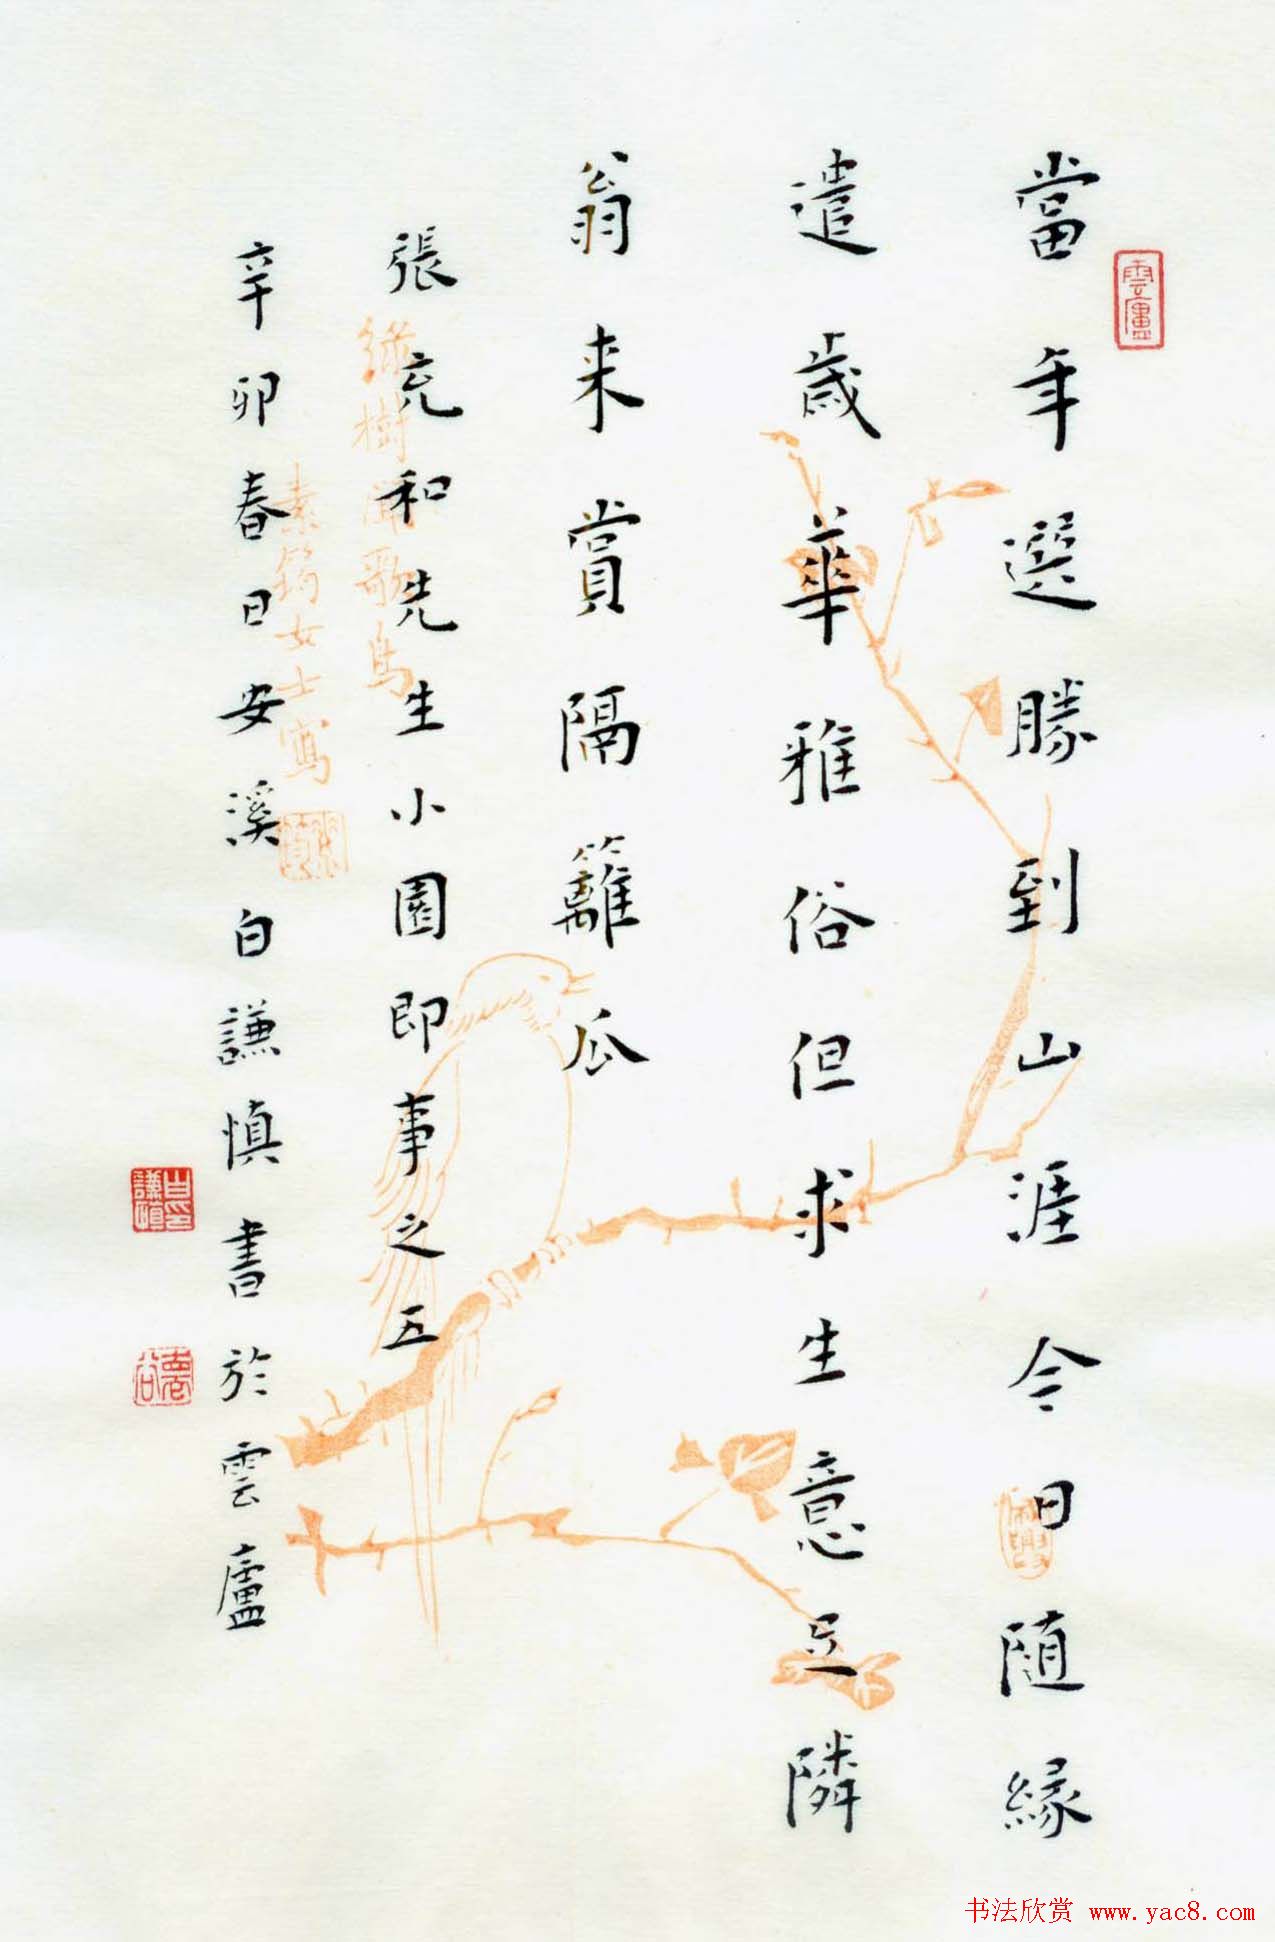 當年選勝到山涯今日随緣
遣歲華雅俗但求生意足隣
翁来賞隔籬瓜
張充和先生小園即事之五
辛卯春日安溪白謙慎書於雲廬
雲廬
綠樹聞歌鳥
素筠女士寫
书法欣赏 www.yac8.com